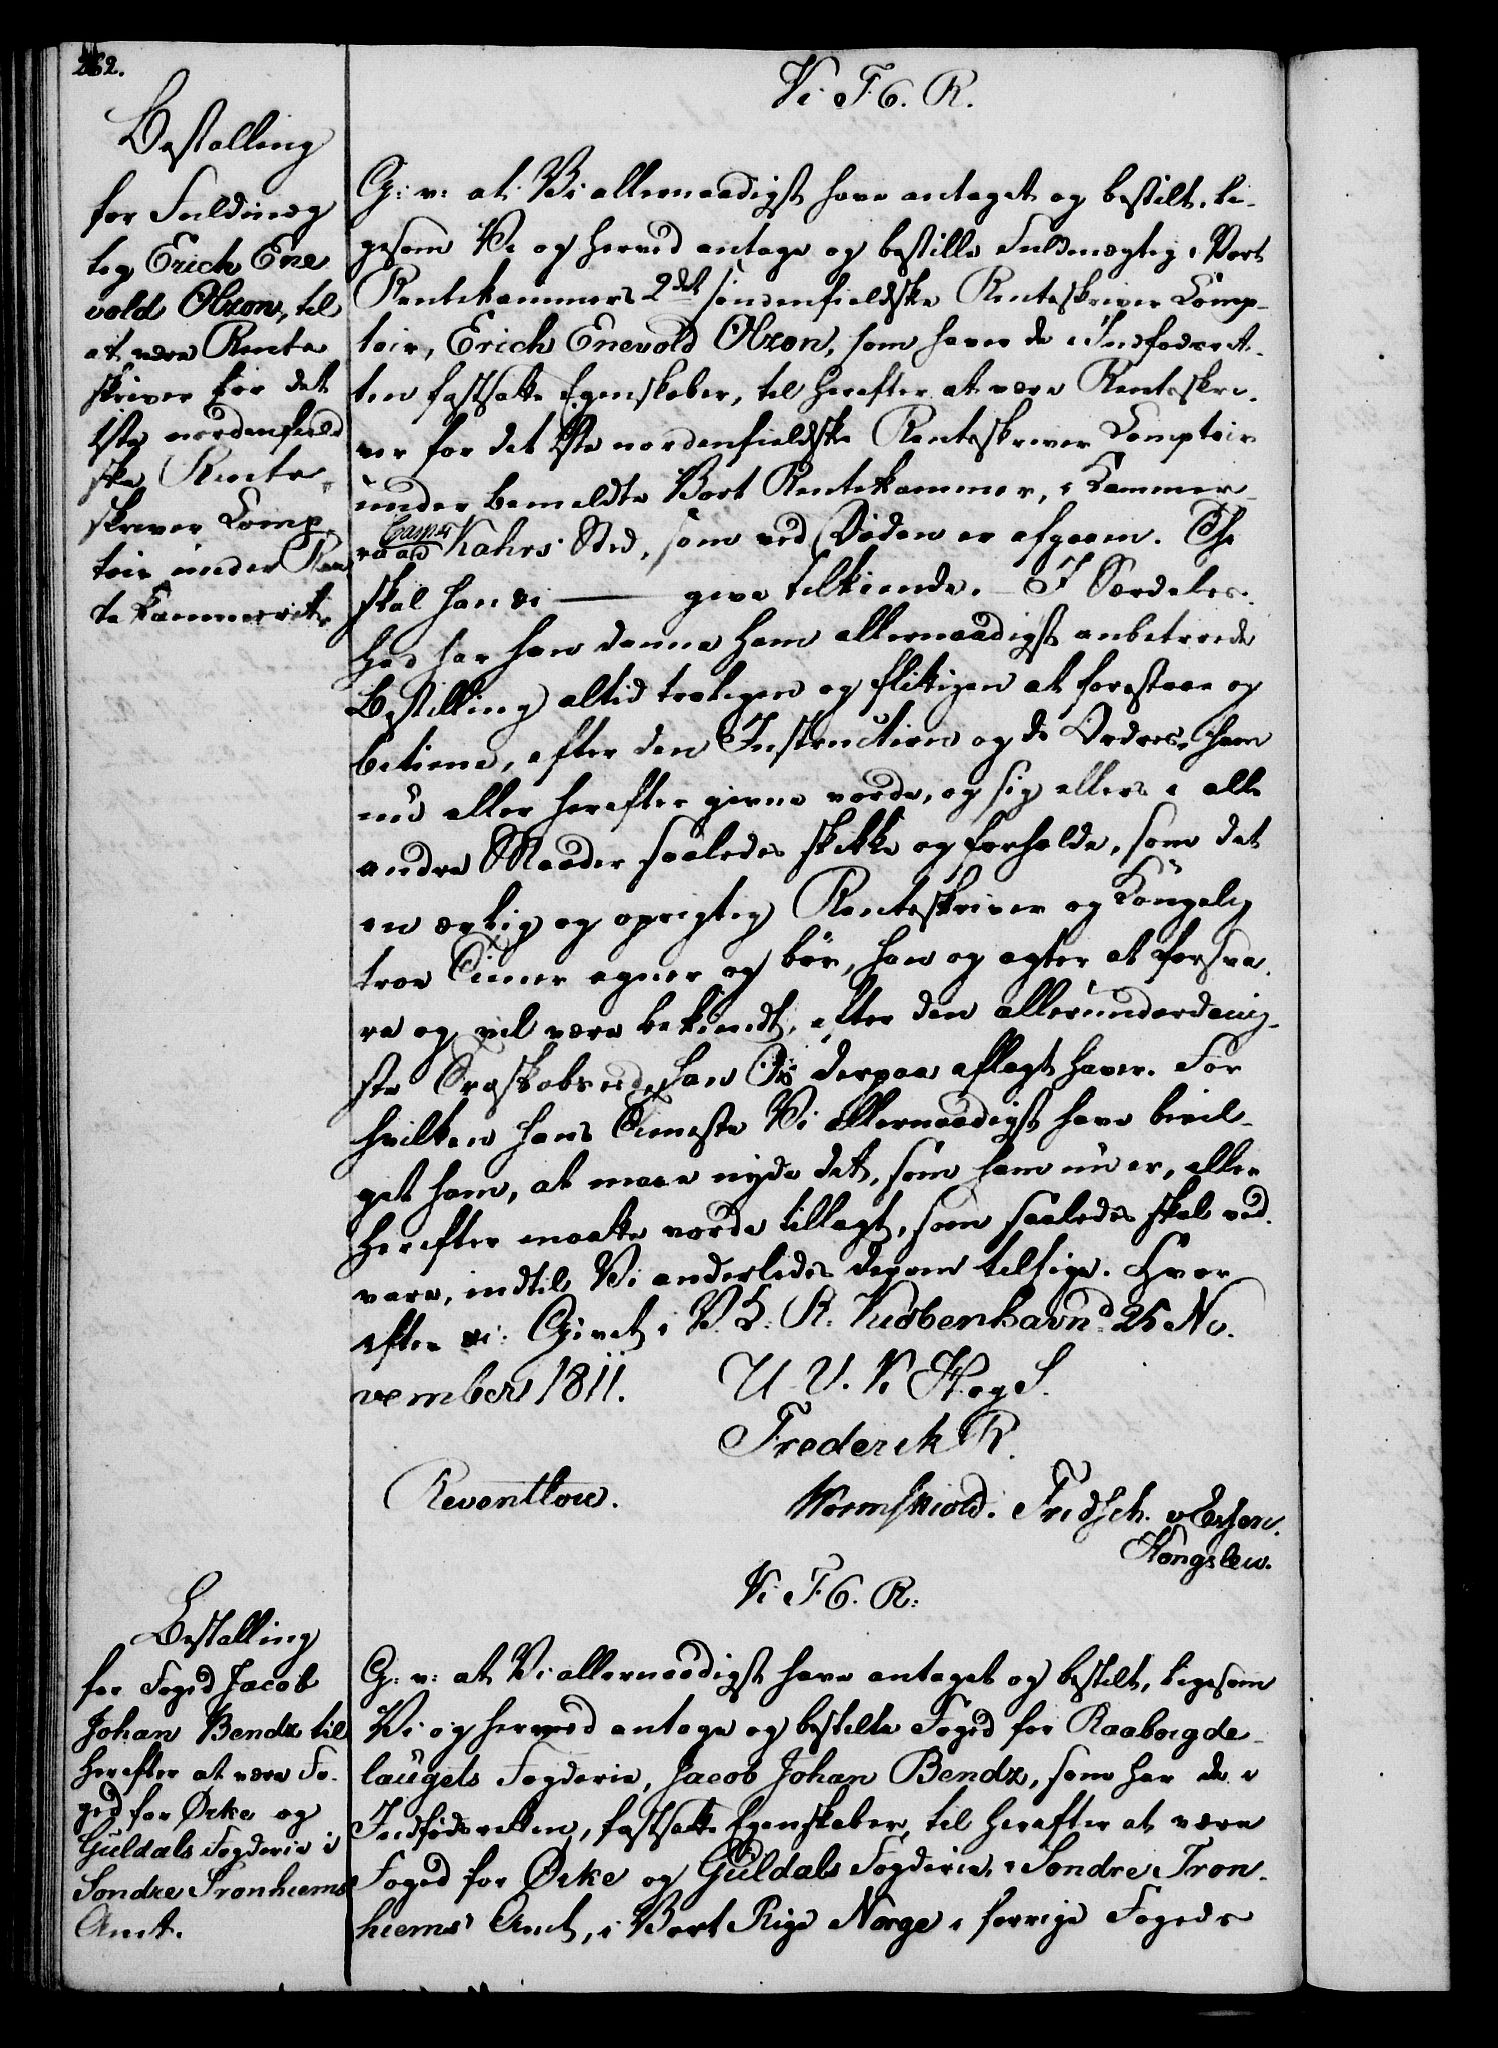 262.
Bestalling
for Fuldmæg
tig Erich Ene
vold Olzon, til
at være Rente
skriver for det
1ste nordenfield
ske Rente-
skriver Comp
toir under Ren
te Kammeret.
Vi F. 6. R.
G: v: at Vi allernaadigst have antaget og bestilt, li-
gesom Vi og herved antage og bestille Fuldmægtig i Vort
Rentekammers 2det søndenfieldske Renteskriver Comp-
toir, Erich Enevold Olzon, som haver de i Indfødsret-
ten fastsatte Egenskaber, til herefter at være Renteskri-
ver for det 1ste nordenfieldske Renteskriver Comptoir
under bemeldte Vort Rentekammer, i Kammer-
raad Casper Kahrs Sted, som ved Døden er afgaaen. Thi
skal han &c ——— give tilkiende. I Særdeles-
hed har han denne ham allernaadigst anbetroede
Bestilling altid troeligen og flittigen at forestaae og
betiene, efter den Instruction og de Ordres, ham
nu eller herefter givne vorde, og sig ellers i alle
andre Maader saaledes skikke og forholde, som det
en ærlig og oprigtig Renteskriver og Kongelig
troe Tiener egner og bør, han og agter at forsva-
re og vil være bekiendt, efter den allerunderdanig-
ste Troskabs eed, han Os derpaa aflagt haver. For
hvilken hans Tieneste Vi allernaadigst have bevil-
get ham, at maae nyde det, som ham nu er, eller
herefter maatte vorde tillagt, som saaledes skal ved-
vare, indtil Vi anderledes derom tilsige. Hvor-
efter &c: Givet i V. K. R. Kiøbenhavn d 25 No-
vember 1811. U. V. K. H. og S.
Frederik R.
Reventlow. Wormskiold. Fridsch. v Essen.
Kongslew.
Bestalling
for Foged Jacob
Johan Bendz til
herefter at være Fo-
ged for Orke og
Guldals Fogderie i
Søndre Tronhiems
Amt.
Vi F. 6. R.
G: v: at Vi allernaadigst have antaget og bestilt, ligesom
Vi og herved antage og bestille Foged for Raabøigde-
laugets Fogderie, Jacob Johan Bendz, som har de i
Indfødsretten, fastsatte Egenskaber, til herefter at være
Foged for Orke og Guldals Fogderie, i Søndre Tron-
hiems Amt, i Vort Rige Norge i forrige Fogeds